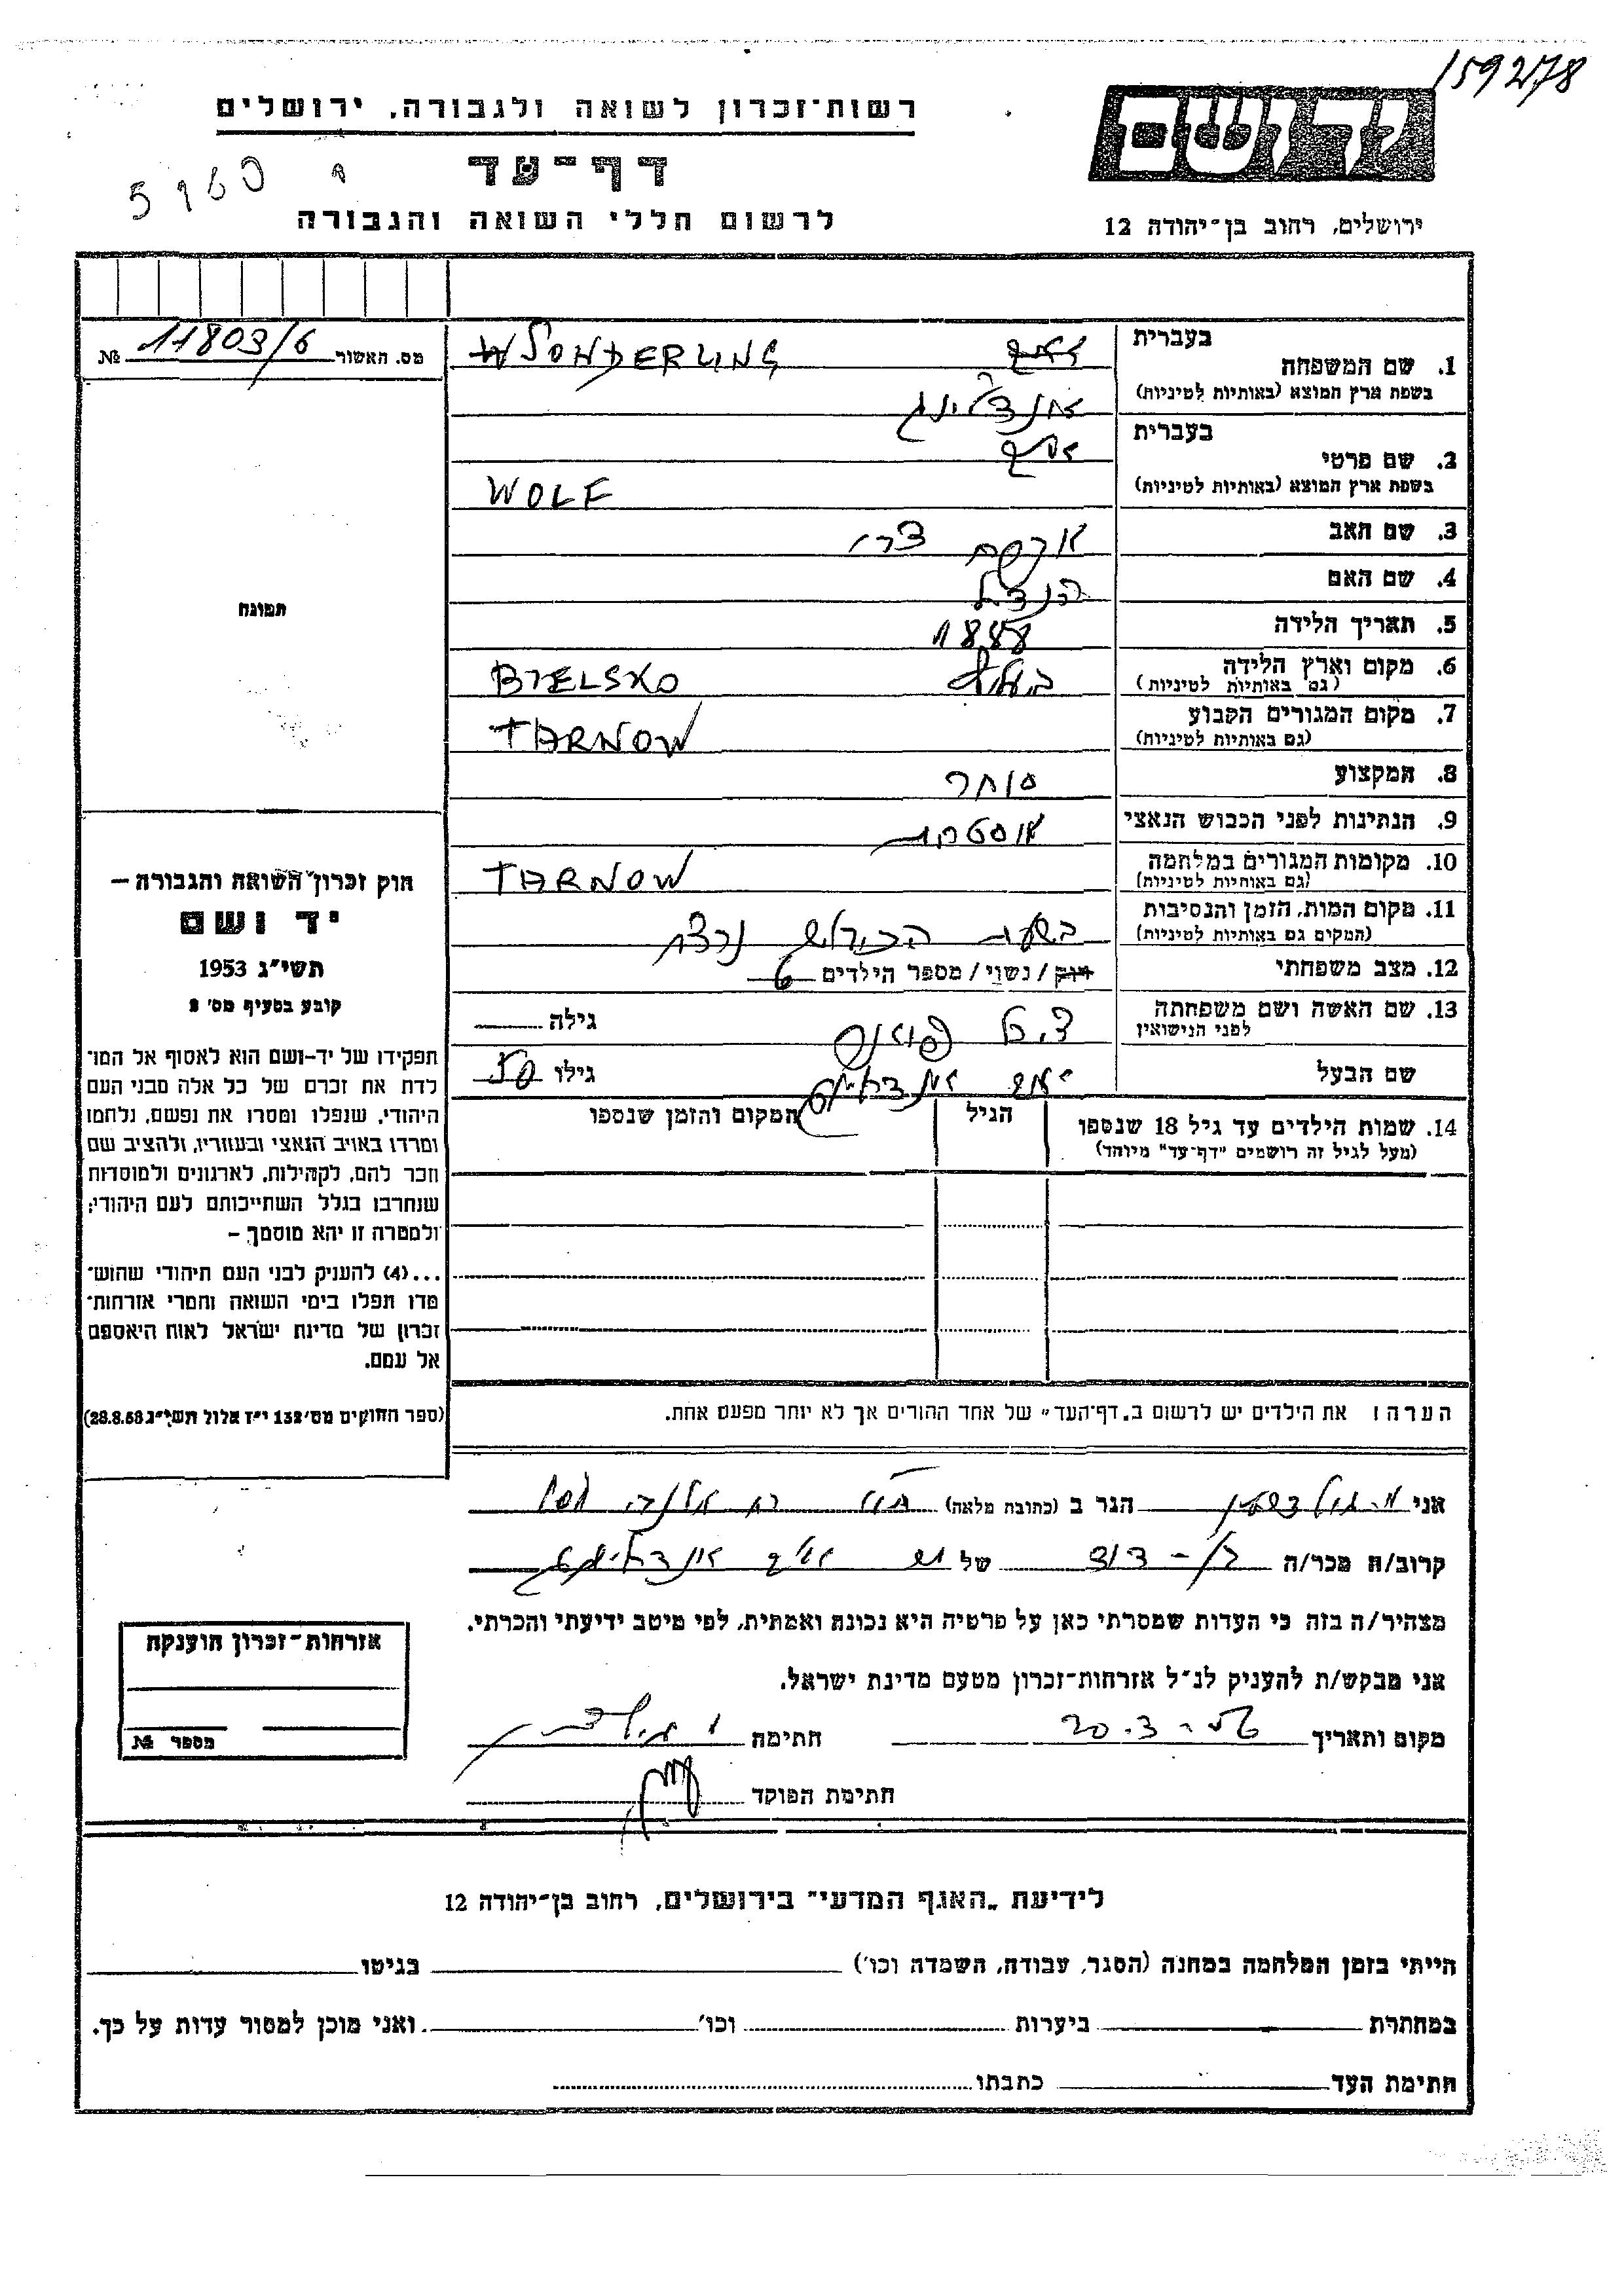 159278
יד ושם
רשות־זכרון לשואה ולגבורה, ירושלים
דף־עד
ירושלים, רחוב בן־יהודה 12
לרשום חללי השואה והגבורה
מס. האשור 11803/6 №
תמונה
חוק זכרון השואה והגבורה –
יד ושם
תשי״ג 1953
קובע בסעיף מס׳ 2
תפקידו של יד־ושם הוא לאסוף אל המו־
לדת את זכרם של כל אלה מבני העם
היהודי, שנפלו ומסרו את נפשם, נלחמו
ומרדו באויב הנאצי ובעוזריו, ולהציב שם
וזכר להם, לקהילות, לארגונים ולמוסדות
שנחרבו בגלל השתייכותם לעם היהודי;
ולמטרה זו יהא מוסמך –
...(4) להעניק לבני העם היהודי שהוש־
מדו ונפלו בימי השואה והמרי אזרחות־
זכרון של מדינת ישראל לאות היאספם
אל עמם.
(ספר החוקים מס׳ 132 י״ז אלול תשי״ג 28.8.53)
בעברית
1. שם המשפחה SONDERLING
בשפת ארץ המוצא (באותיות לטיניות)
בעברית
2. שם פרטי
בשפת ארץ המוצא (באותיות לטיניות) WOLF
3. שם האב
4. שם האם הנדל
5. תאריך הלידה 1888
6. מקום וארץ הלידה BIELSKO
(גם באותיות לטיניות)
7. מקום המגורים הקבוע TARNOW
(גם באותיות לטיניות)
8. המקצוע סוחר
9. הנתינות לפני הכבוש הנאצי
10. מקומות המגורים במלחמה TARNOW
(גם באותיות לטיניות)
11. מקום המות, הזמן והנסיבות
(המקום גם באותיות לטיניות)
12. מצב משפחתי רווק / נשוי / מספר הילדים 6
13. שם האשה ושם משפחתה גילה
לפני הנישואין
שם הבעל גילו 50
14. שמות הילדים עד גיל 18 שנספו הגיל המקום והזמן שנספו
(מעל לגיל זה רושמים "דף־עד" מיוחד)
הערה: את הילדים יש לרשום ב„דף־העד״ של אחד ההורים אך לא יותר מפעם אחת.
אני הגר ב (כתובת מלאה)
קרוב/ה מכר/ה בן-דוד של
מצהיר/ה בזה כי העדות שמסרתי כאן על פרטיה היא נכונה ואמתית, לפי מיטב ידיעתי והכרתי.
אני מבקש/ת להעניק לנ״ל אזרחות־זכרון מטעם מדינת ישראל.
מקום ותאריך 20.3 חתימה
חתימת הפוקד
אזרחות־זכרון הוענקה
מספר №
לידיעת „האגף המדעי״ בירושלים, רחוב בן־יהודה 12
הייתי בזמן המלחמה במחנה (הסגר, עבודה, השמדה וכו׳) בגיטו
במחתרת ביערות וכו׳ ואני מוכן למסור עדות על כך.
חתימת העד כתבתו